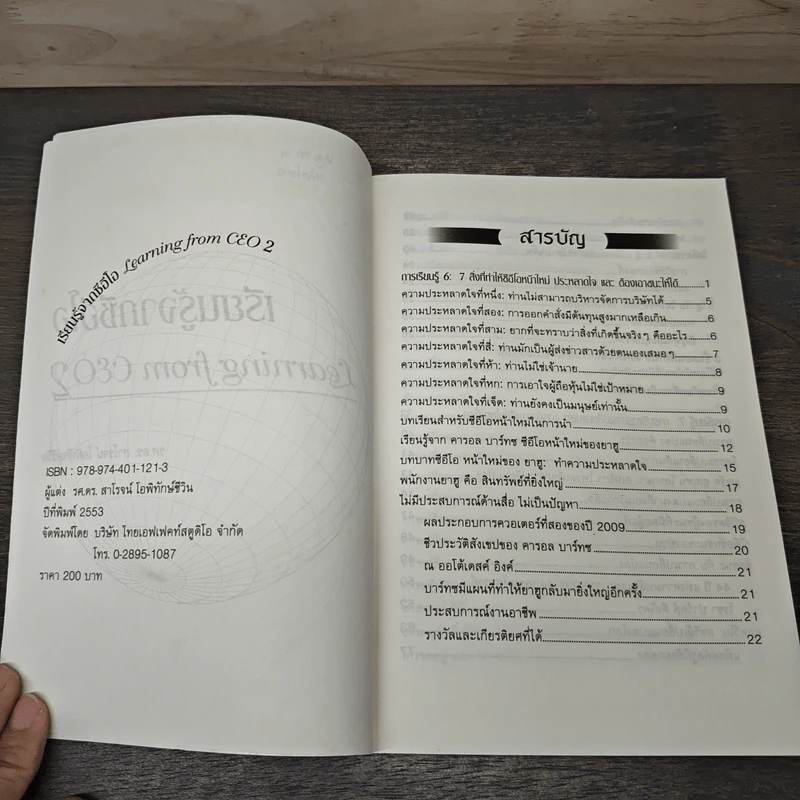 เรียนรู้จากซีอีโอ Learning from CEO 2
ISBN : 978-974-401-121-3
ผู้แต่ง รศ.ดร. สาโรจน์ โอพิทักษ์ชีวิน
ปีที่พิมพ์ 2553
จัดพิมพ์โดย บริษัท ไทยเอฟเฟคท์สตูดิโอ จำกัด
โทร. 0-2895-1087
ราคา 200 บาท
สารบัญ
การเรียนรู้ 6: 7 สิ่งที่ทำให้ซีอีโอหน้าใหม่ ประหลาดใจ และ ต้องเอาชนะให้ได้..........1
ความประหลาดใจที่หนึ่ง: ท่านไม่สามารถบริหารจัดการบริษัทได้..........5
ความประหลาดใจที่สอง: การออกคำสั่งมีต้นทุนสูงมากเหลือเกิน..........6
ความประหลาดใจที่สาม: ยากที่จะทราบว่าสิ่งที่เกิดขึ้นจริงๆ คืออะไร..........6
ความประหลาดใจที่สี่: ท่านมักเป็นผู้ส่งข่าวสารด้วยตนเองเสมอๆ..........7
ความประหลาดใจที่ห้า: ท่านไม่ใช่เจ้านาย..........8
ความประหลาดใจที่หก: การเอาใจผู้ถือหุ้นไม่ใช่เป้าหมาย..........9
ความประหลาดใจที่เจ็ด: ท่านยังคงเป็นมนุษย์เท่านั้น..........9
บทเรียนสำหรับซีอีโอหน้าใหม่ในการนำ..........10
เรียนรู้จาก คารอล บาร์ทซ ซีอีโอหน้าใหม่ของยาฮู..........12
บทบาทซีอีโอ หน้าใหม่ ของ ยาฮู: ทำความประหลาดใจ..........15
พนักงานยาฮู คือ สินทรัพย์ที่ยิ่งใหญ่..........17
ไม่มีประสบการณ์ด้านสื่อ ไม่เป็นปัญหา..........18
ผลประกอบการควอเตอร์ที่สองของปี 2009..........19
ชีวประวัติสังเขปของ คารอล บาร์ทซ..........20
ณ ออโต้เดสค์ อิงค์..........21
บาร์ทซมีแผนที่ทำให้ยาฮูกลับมายิ่งใหญ่อีกครั้ง..........21
ประสบการณ์งานอาชีพ..........21
รางวัลและเกียรติยศที่ได้..........22